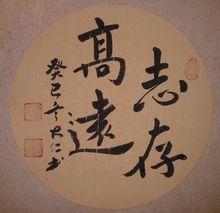 志存
高遠
癸巳年大仁书